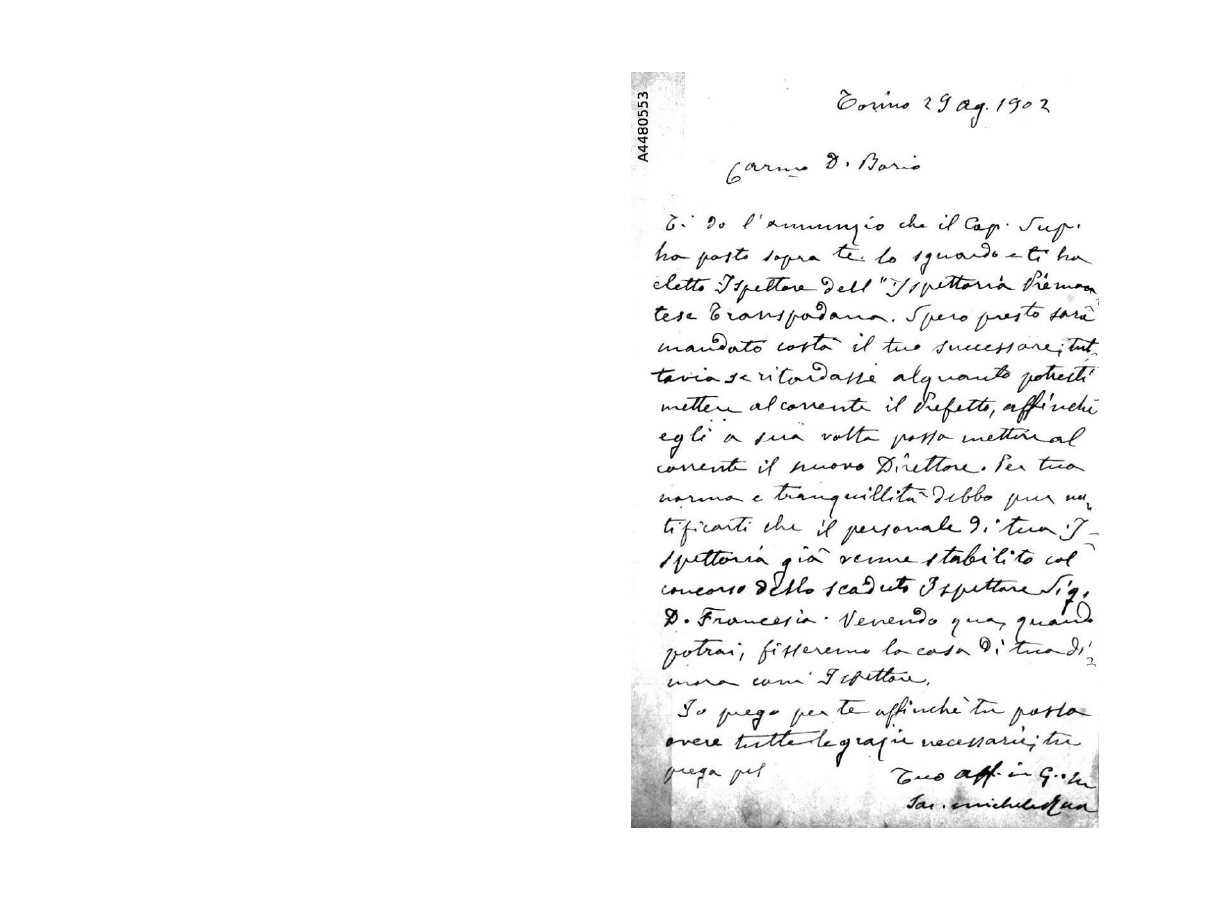 A4480553
Torino 29 ag. 1902
Carmo D. Bario
Ti do l'annunzio che il Cap. Sup.
ha posto sopra te lo sguardo e ti ha
eletto Ispettore dell'"Ispettoria Piemon
tese Transpadana. Spero presto sarà
mandato costà il tuo successore; tut
tavia se ritardasse alquanto potresti
mettere al corrente il Prefetto, affinchè
egli a sua volta possa mettere al
corrente il nuovo Direttore. Per tua
norma e tranquillità debbo pur no
tificarti che il personale di tua I-
spettoria già venne stabilito col
concorso dello scaduto Ispettore Sig.
D. Francesia. Venendo qua, quando
potrai, fisseremo la casa di tua di
mora come Ispettore.
Io prego per te affinchè tu possa
avere tutte le grazie necessarie; tu
prega pel
Tuo aff. in G. e M
Sac. Michele Rua